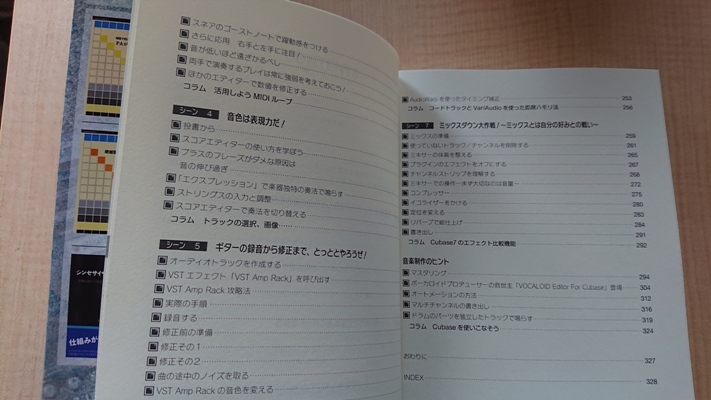 スネアのゴーストノートで躍動感をつける
さらに応用 右手と左手に注目!
音が低いほど遠ざかるべし
両手で演奏するプレイは常に強弱を考えておこう!
ほかのエディターで数値を修正する
コラム 活用しよう MIDI ループ
シーン 4 音色は表現力だ!
投書から
スコアエディターの使い方を学ぼう
ブラスのフレーズがダメな原因は
音の伸び過ぎ
「エクスプレッション」で楽器独特の奏法で鳴らす
ストリングスの入力と調整
スコアエディターで奏法を切り替える
コラム トラックの選択、画像……
シーン 5 ギターの録音から修正まで、とっととやろうぜ!
オーディオトラックを作成する
VST エフェクト「VST Amp Rack」を呼び出す
VST Amp Rack 攻略法
実際の手順
録音する
修正前の準備
修正その 1
修正その 2
曲の途中のノイズを取る
VST Amp Rack の音色を変える
AudioWarp を使ったタイミング補正 253
コラム コードトラックと VariAudio を使った即席ハモリ法 256
シーン 7 ミックスダウン大作戦!～ミックスとは自分の好みとの戦い～
ミックスの準備 259
使っていないトラック/チャンネルを削除する 261
ミキサーの体裁を整える 265
プラグインのエフェクトをオフにする 267
チャンネルストリップを理解する 268
ミキサーでの操作～まず大切なのは音量～ 272
コンプレッサー 275
イコライザーをかける 280
定位を変える 283
リバーブで総仕上げ 284
書き出し 291
コラム Cubase7 のエフェクト比較機能 292
音楽制作のヒント
マスタリング 294
ボーカロイドプロデューサーの救世主「VOCALOID Editor For Cubase」登場 304
オートメーションの方法 312
マルチチャンネルの書き出し 316
ドラムのパーツを独立したトラックで鳴らす 319
コラム Cubase を使いこなそう 324
おわりに 327
INDEX 328
シンセサイザ
仕組みが